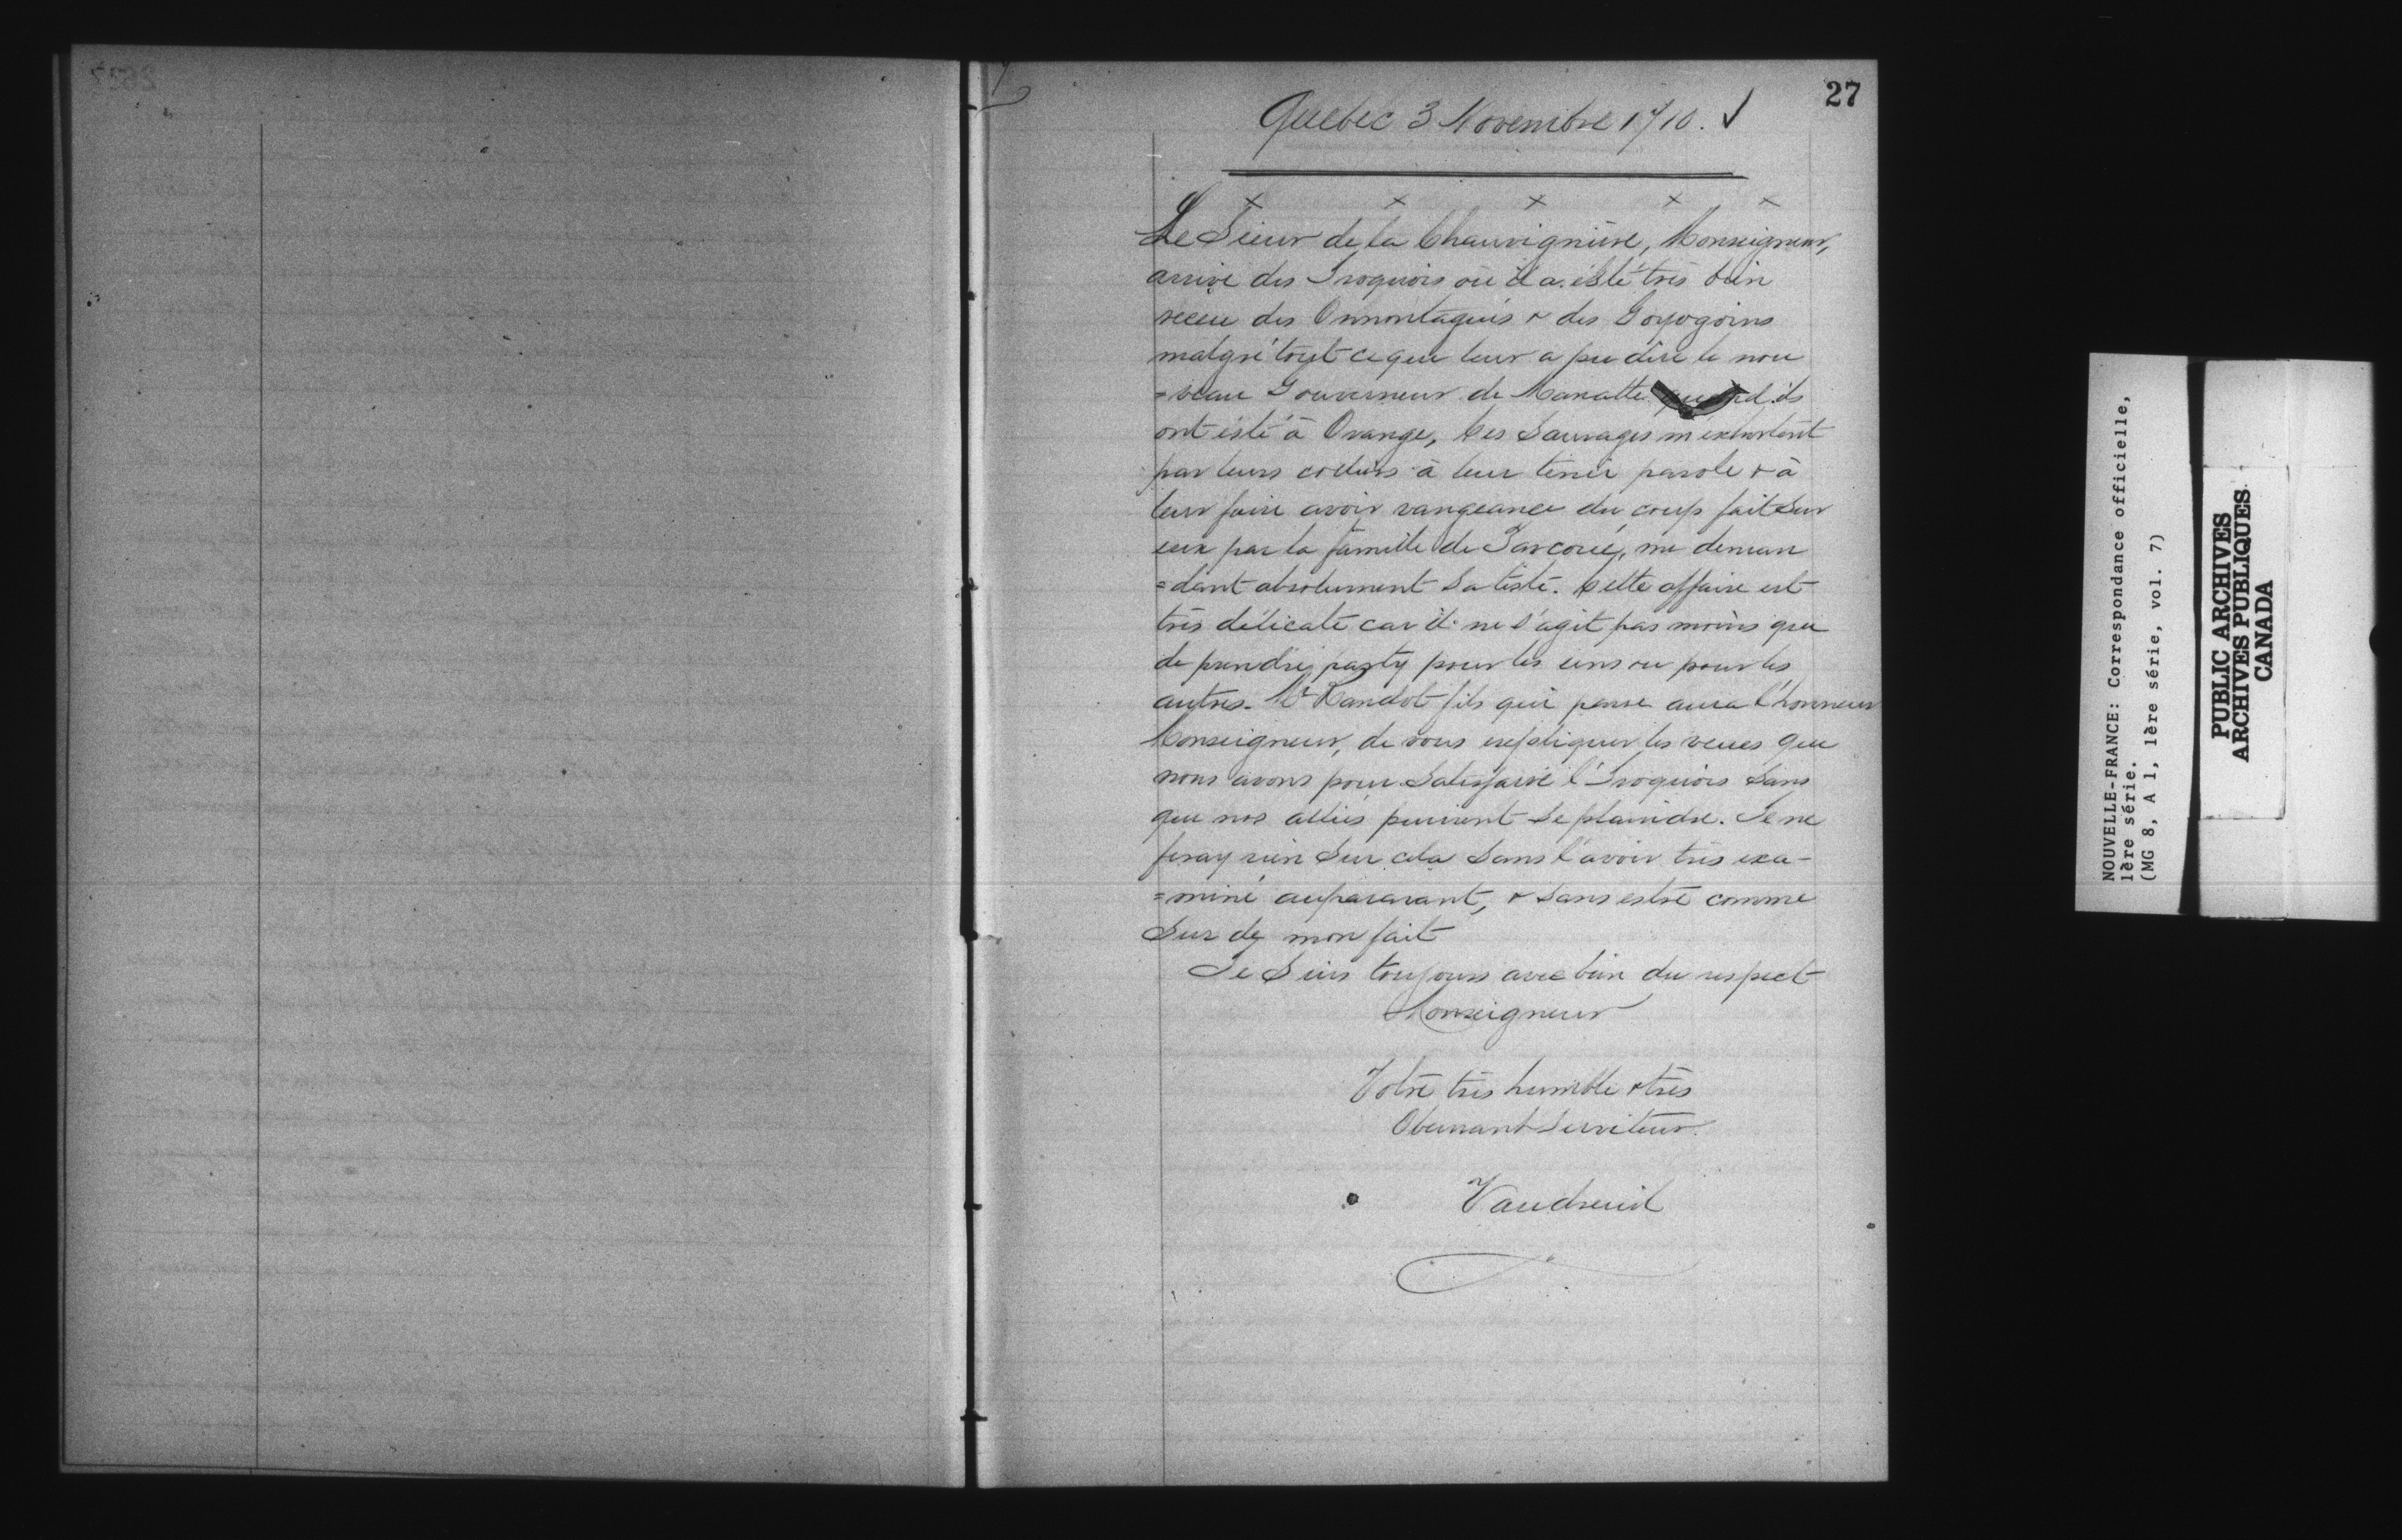 27
Quebec 3 Novembre 1710. ✓
x x x x x
Le Sieur de la Chauvignière, Monseigneur,
arrive des Iroquois où il a esté très bien
receu des Onnontagués & des Goyogoins
malgré tout ce que leur a pu dire le nou
=veau Gouverneur de Manatte quand ils
ont esté à Orange, Ces Sauvages m'exhortent
par leurs coliers à leur tenir parole & à
leur faire avoir vangeance du coup fait Sur
eux par la famille de, me deman
=dant absolument Sa teste. Cette affaire est
très délicate car il ne s'agit pas moins que
de prendre party pour les uns ou pour les
autres. Mr Raudot fils qui passe aura l'honneur
Monseigneur, de vous expliquer les veues que
nous avons pour Satisfaire l'Iroquois Sans
que nos alliés puissent Se plaindre. Je ne
feray rien Sur cela Sans l'avoir très exa-
=miné auparavant, & Sans estre comme
Sur de mon fait
Je Suis toujours avec bien du respect
Monseigneur
Votre très humble & très
Obeissant Serviteur.
Vaudreuil
NOUVELLE-FRANCE: Correspondance officielle,
1ère série.
(MG 8, A 1, 1ère série, vol. 7)
PUBLIC ARCHIVES
ARCHIVES PUBLIQUES
CANADA